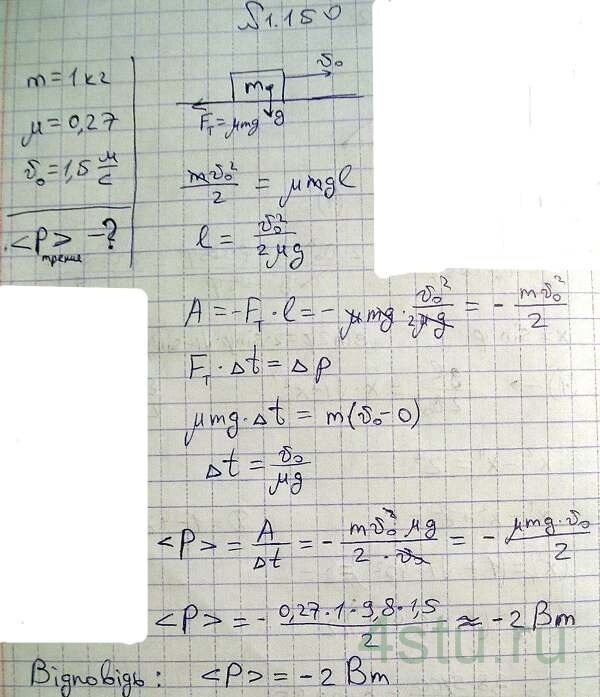 N1.150
m = 1 кг
μ = 0,27
v₀ = 1,5 м/с
<P>трения - ?
v₀
m
Fт = μmg
g
mv₀²/2 = μmgl
l = v₀²/2μg
A = -Fт · l = - μmg · v₀²/2μg = - mv₀²/2
Fт · Δt = Δp
μmg · Δt = m(v₀ - 0)
Δt = v₀/μg
<P> = A/Δt = - mv₀² μg/2 · v₀ = - μmg · v₀/2
<P> = - 0,27 · 1 · 9,8 · 1,5/2 ≈ -2 Вт
4stu.ru
Відповідь: <P> = -2 Вт